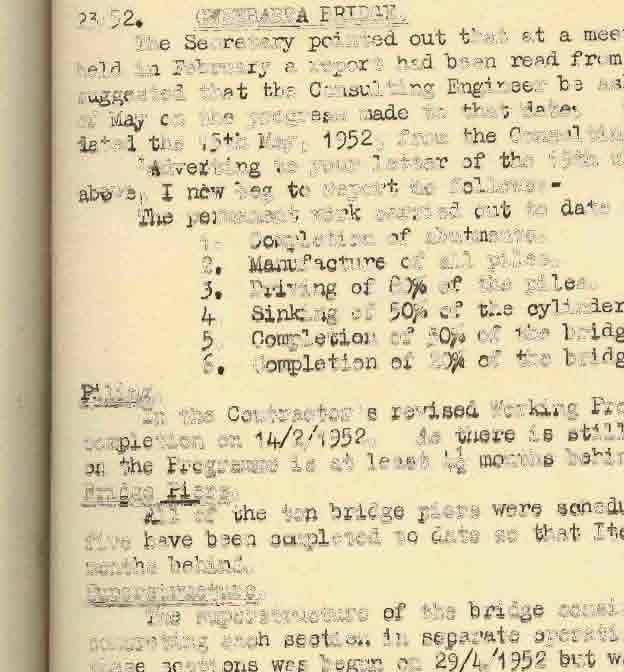 23/52. BRIDGE.
The Secretary pointed out that at a mee
held in February a report had been read from
suggested that the Consulting Engineer be as
of May on the progress made to that date.
dated the 15th May, 1952, from the Consulting
"Adverting to your letter of the 15th
above, I now beg to report as follows:-
The permanent work carried out to date
1. Completion of abutments.
2. Manufacture of all piles.
3. Driving of 80% of the piles.
4 Sinking of 50% of the cylinder
5 Completion of 50% of the bridg
6. Completion of 20% of the bridg
Piling.
In the Contractor's revised Working Pro
completion on 14/2/1952. As there is still
on the Programme is at least months behin
Bridge Piers.
All of the ten bridge piers were schedu
five have been completed to date so that Ite
months behind.
Superstructure.
The superstructure of the bridge consi
concreting each section in separate operati
these sections was begun on 29/4/1952 but w